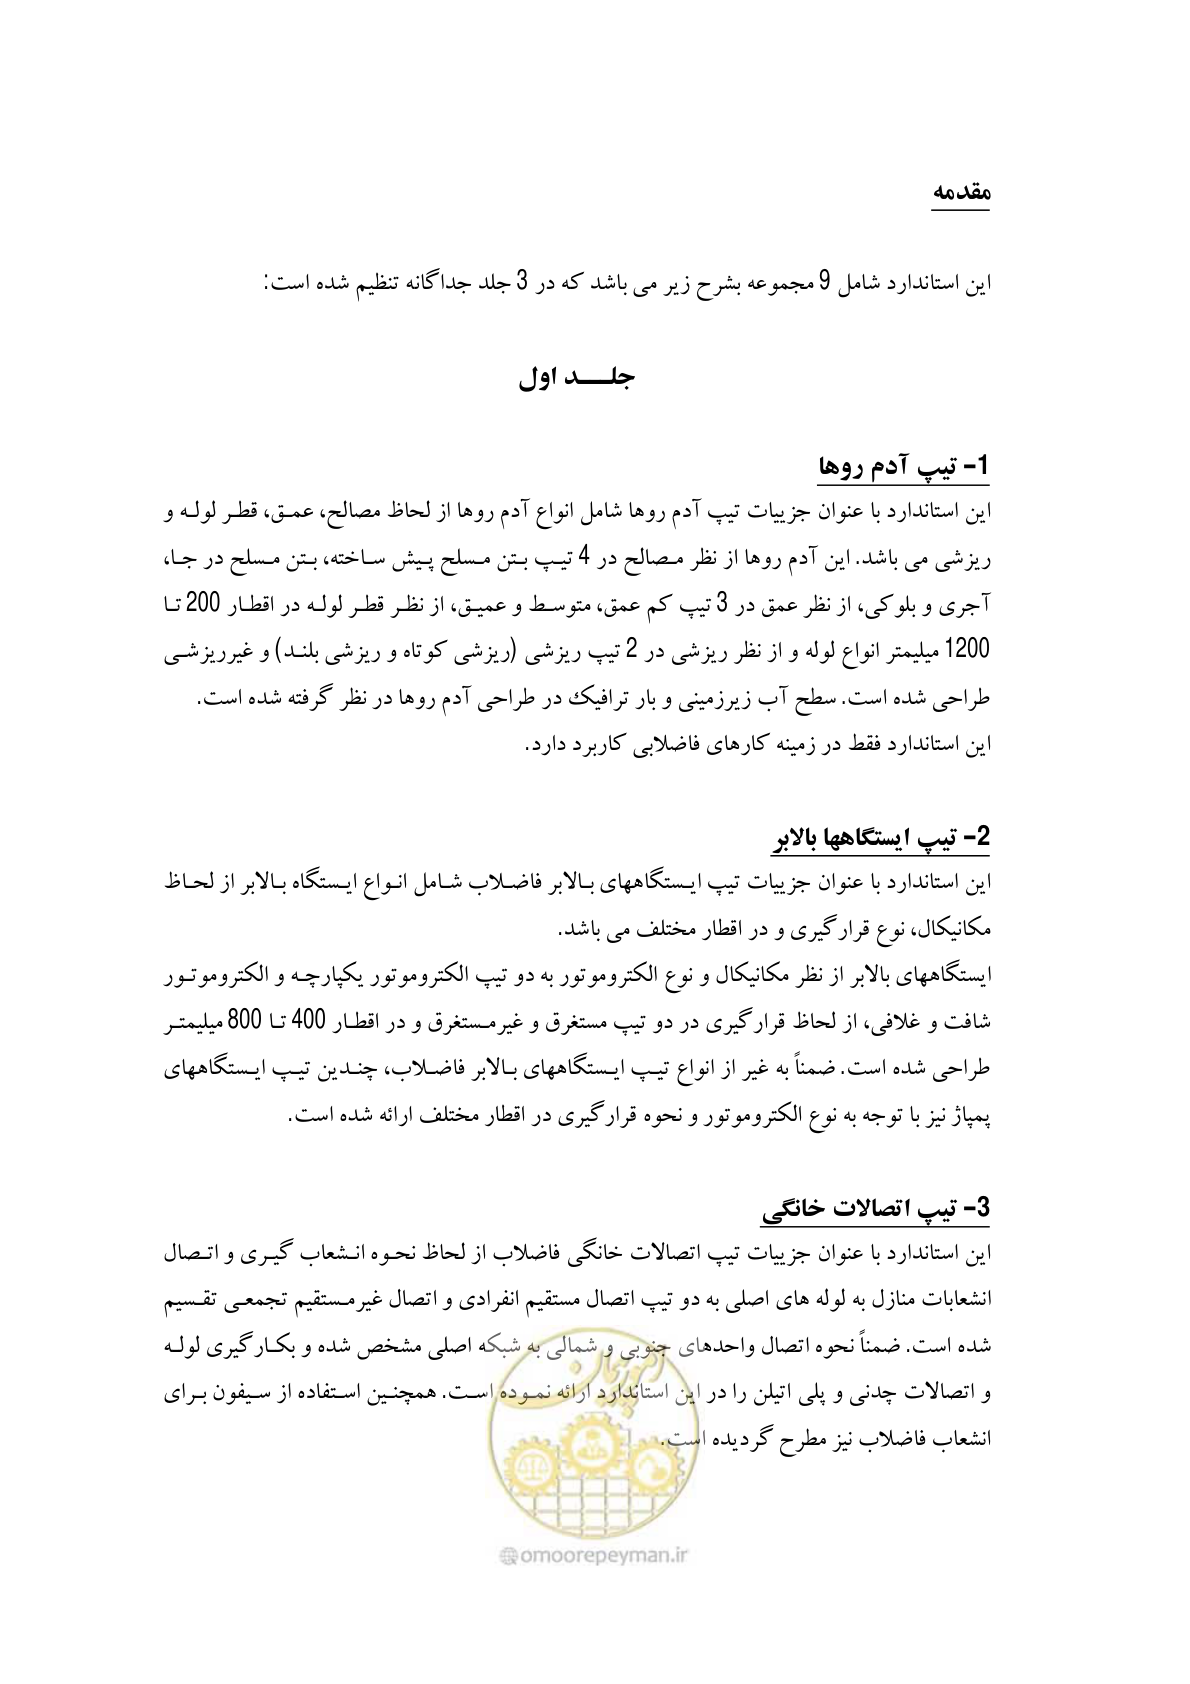 مقدمه
این استاندارد شامل 9 مجموعه بشرح زیر می باشد که در 3 جلد جداگانه تنظیم شده است:
جلـــــد اول
1- تیپ آدم روها
این استاندارد با عنوان جزییات تیپ آدم روها شامل انواع آدم روها از لحاظ مصالح، عمـق، قطـر لولـه و
ریزشی می باشد. این آدم روها از نظر مـصالح در 4 تیـپ بـتن مـسلح پـیش سـاخته، بـتن مـسلح در جـا،
آجری و بلوکی، از نظر عمق در 3 تیپ کم عمق، متوسـط و عمیـق، از نظـر قطـر لولـه در اقطـار 200 تـا
1200 میلیمتر انواع لوله و از نظر ریزشی در 2 تیپ ریزشی (ریزشی کوتاه و ریزشی بلنـد) و غیرریزشـی
طراحی شده است. سطح آب زیرزمینی و بار ترافیک در طراحی آدم روها در نظر گرفته شده است.
این استاندارد فقط در زمینه کارهای فاضلابی کاربرد دارد.
2- تیپ ایستگاهها بالابر
این استاندارد با عنوان جزییات تیپ ایـستگاههای بـالابر فاضـلاب شـامل انـواع ایـستگاه بـالابر از لحـاظ
مکانیکال، نوع قرارگیری و در اقطار مختلف می باشد.
ایستگاههای بالابر از نظر مکانیکال و نوع الکتروموتور به دو تیپ الکتروموتور یکپارچـه و الکتروموتـور
شافت و غلافی، از لحاظ قرارگیری در دو تیپ مستغرق و غیرمـستغرق و در اقطـار 400 تـا 800 میلیمتـر
طراحی شده است. ضمناً به غیر از انواع تیـپ ایـستگاههای بـالابر فاضـلاب، چنـدین تیـپ ایـستگاههای
پمپاژ نیز با توجه به نوع الکتروموتور و نحوه قرارگیری در اقطار مختلف ارائه شده است.
3- تیپ اتصالات خانگی
این استاندارد با عنوان جزییات تیپ اتصالات خانگی فاضلاب از لحاظ نحـوه انـشعاب گیـری و اتـصال
انشعابات منازل به لوله های اصلی به دو تیپ اتصال مستقیم انفرادی و اتصال غیرمـستقیم تجمعـی تقـسیم
شده است. ضمناً نحوه اتصال واحدهای جنوبی و شمالی به شبکه اصلی مشخص شده و بکـارگیری لولـه
و اتصالات چدنی و پلی اتیلن را در این استاندارد ارائه نمـوده اسـت. همچنـین اسـتفاده از سـیفون بـرای
انشعاب فاضلاب نیز مطرح گردیده است.
امور پیمان
@omoorepeyman.ir